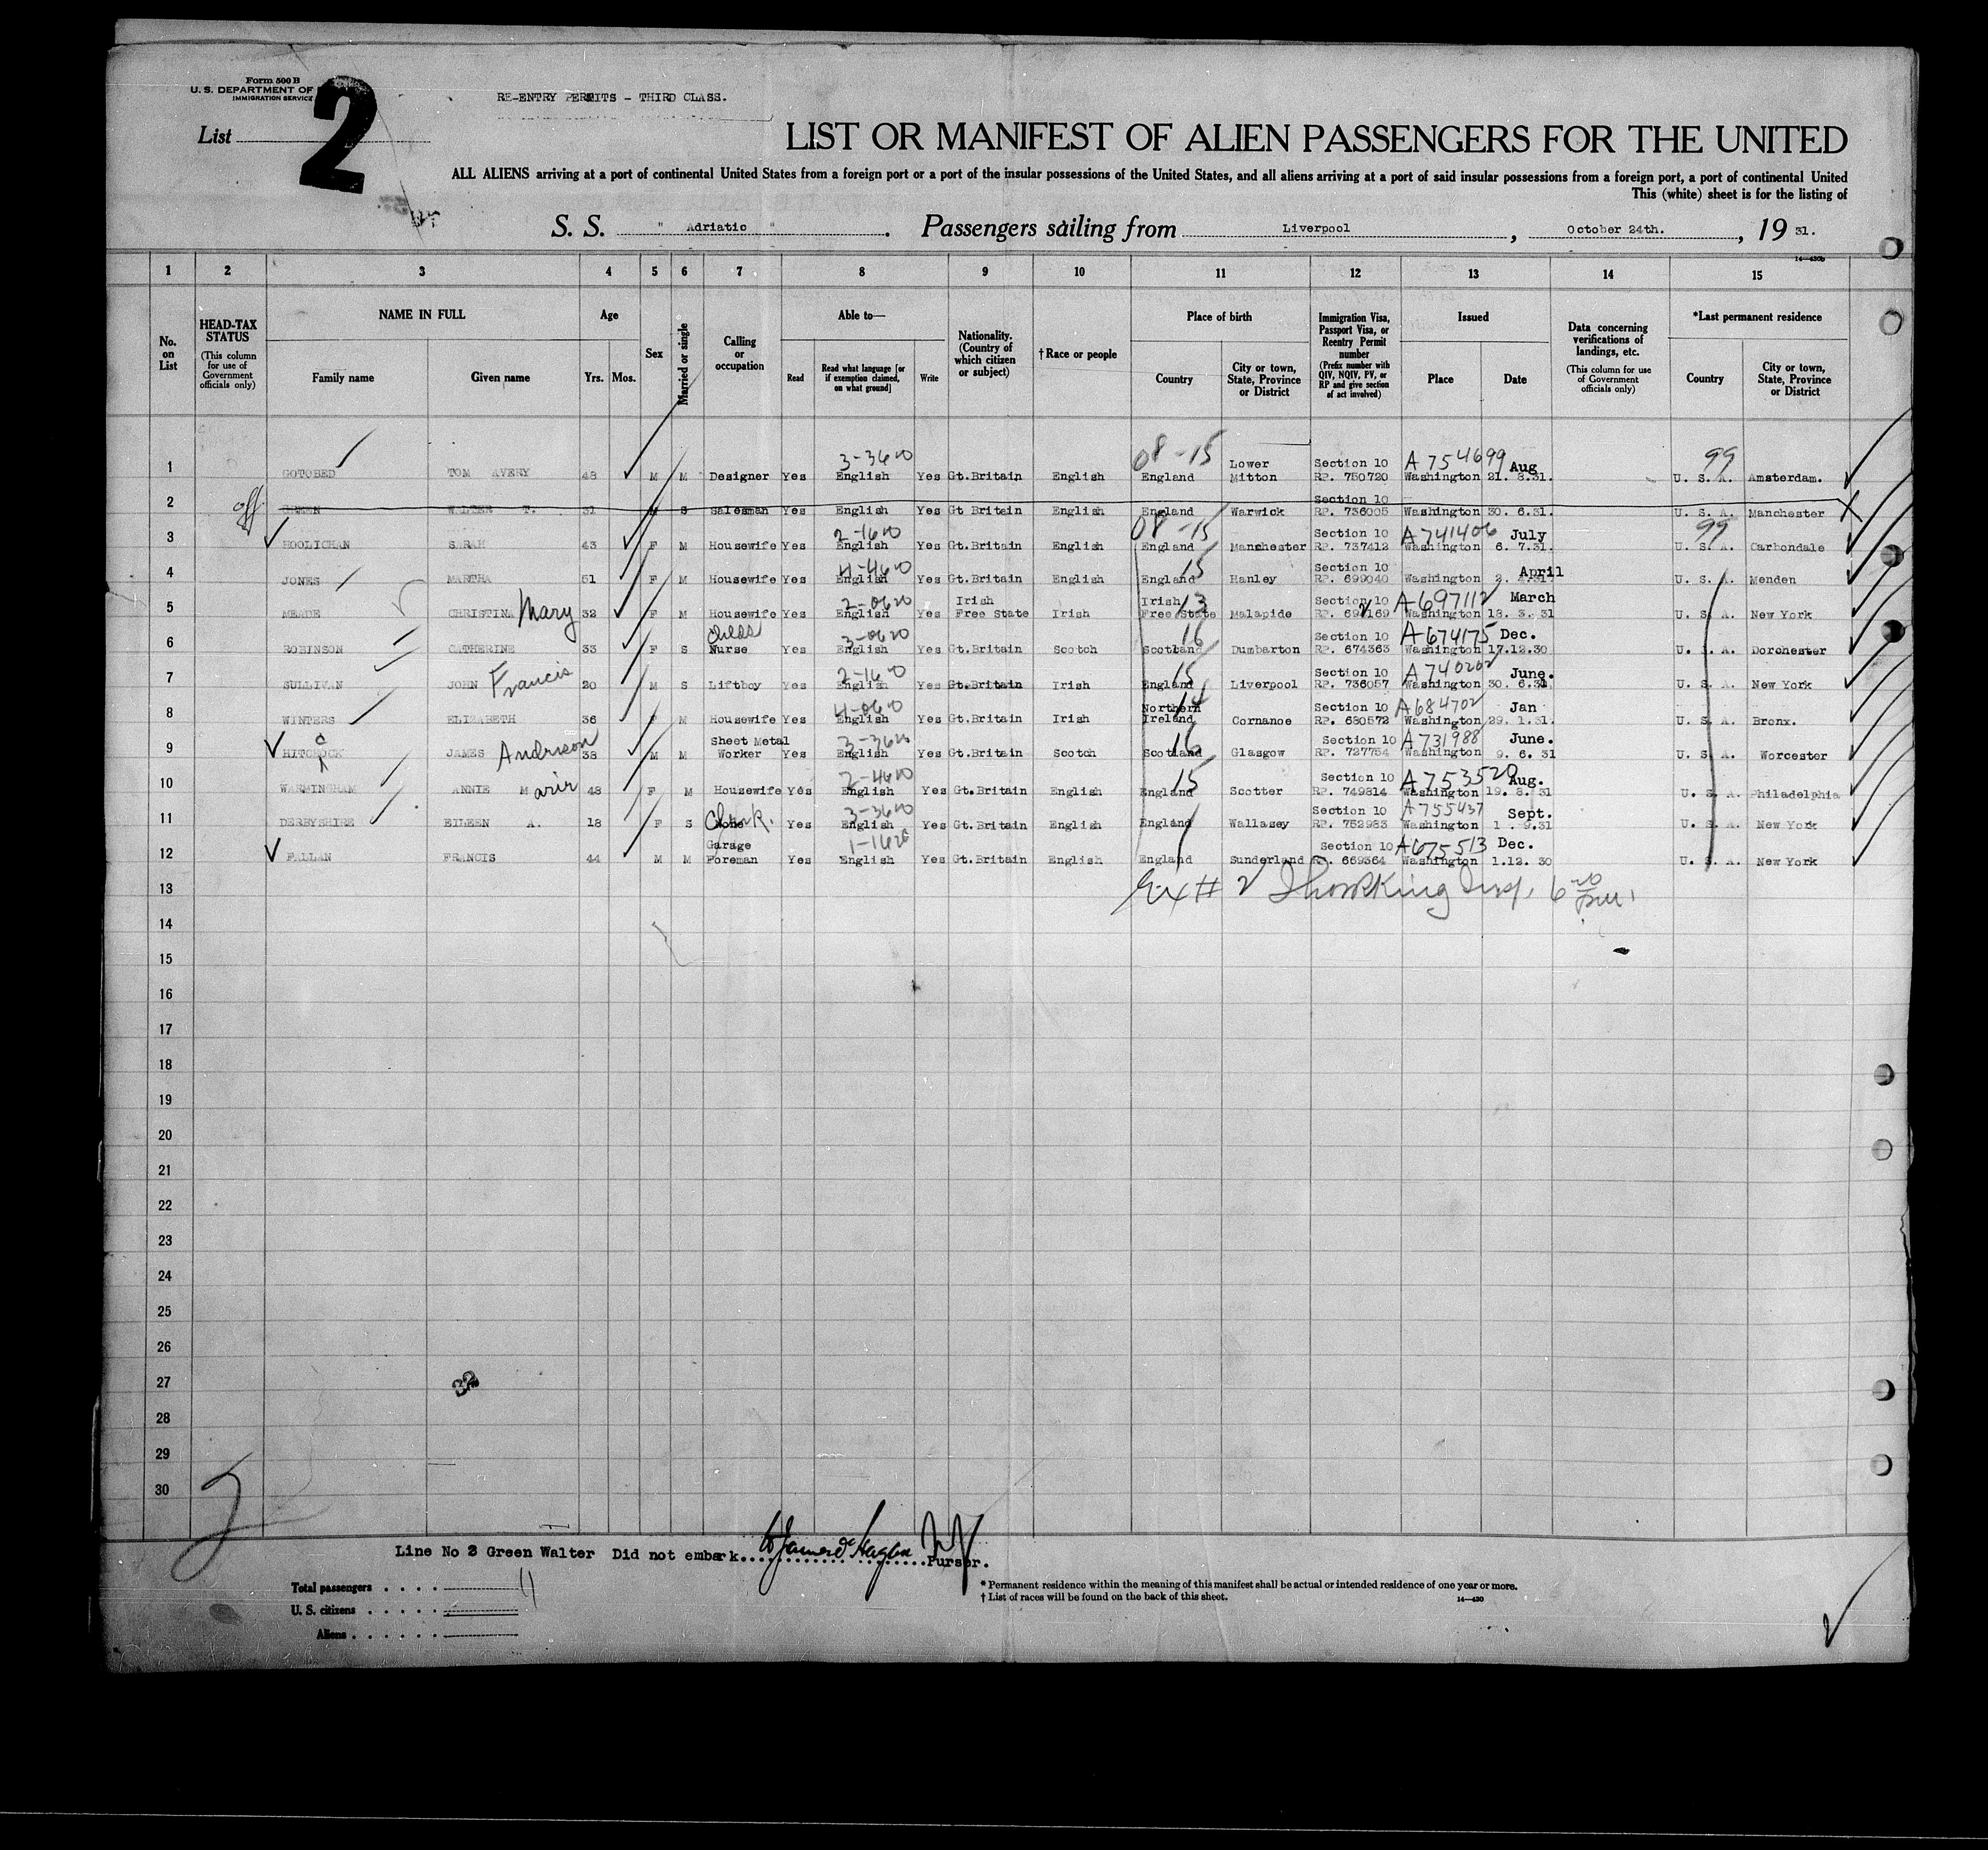 Form 500 B
U. S. DEPARTMENT OF
IMMIGRATION SERVICE
RE-ENTRY PERMITS - THIRD CLASS.
List 2
LIST OR MANIFEST OF ALIEN PASSENGERS FOR THE UNITED
ALL ALIENS arriving at a port of continental United States from a foreign port or a port of the insular possessions of the United States, and all aliens arriving at a port of said insular possessions from a foreign port, a port of continental United
This (white) sheet is for the listing of
S. S. " Adriatic " . Passengers sailing from Liverpool , October 24th. , 19 31.
14—430b
1 2 3 4 5 6 7 8 9 10 11 12 13 14 15
No. on List
HEAD-TAX STATUS (This column for use of Government officials only)
NAME IN FULL Family name Given name
Age Yrs. Mos.
Sex
Married or single
Calling or occupation
Able to— Read Read what language [or if exemption claimed, on what ground] Write
Nationality. (Country of which citizen or subject)
† Race or people
Place of birth Country City or town, State, Province or District
Immigration Visa, Passport Visa, or Reentry Permit number (Prefix number with QIV, NQIV, PV, or RP and give section of act involved)
Issued Place Date
Data concerning verifications of landings, etc. (This column for use of Government officials only)
*Last permanent residence Country City or town, State, Province or District
3-3600 08-15 Lower Section 10 A 754699 Aug 99
1 GOTOBED TOM AVERY 48 M M Designer Yes English Yes Gt.Britain English England Mitton RP. 750720 Washington 21. 8.31. U. S. A. Amsterdam.
Section 10
2 off GREEN WALTER T. 31 M S Salesman Yes English Yes Gt Britain English England Warwick RP. 736005 Washington 30. 6.31. U. S. A. Manchester
2-1600 08-15 Section 10 A 741406 July 99
3 HOOLICHAN SARAH 43 F M Housewife Yes English Yes Gt.Britain English England Manchester RP. 737412 Washington 6. 7.31. U. S. A. Carbondale
4-4600 15 Section 10 April
4 JONES MARTHA 51 F M Housewife Yes English Yes Gt.Britain English England Hanley RP. 699040 Washington 2. U. S. A. Menden
2-0620 Irish Irish 13 Section 10 A697112 March
5 MEADE CHRISTINA Mary 32 F M Housewife Yes English Yes Free State Irish Free State Malapide Washington 18. 3. 31 U. S. A. New York
Childs 3-0620 16 Section 10 A674175 Dec.
6 ROBINSON CATHERINE 33 F S Nurse Yes English Yes Gt.Britain Scotch Scotland Dumbarton RP. 674363 Washington 17.12.30 U. S. A. Dorchester
2-1600 15 Section 10 A 740202 June.
7 SULLIVAN JOHN Francis 20 M S Liftboy Yes English Yes Gt.Britain Irish England Liverpool RP. 736057 Washington 30. 6.31 U. S. A. New York
4-0600 Northern 14 Section 10 A684702 Jan
8 WINTERS ELIZABETH 36 F M Housewife Yes English Yes Gt.Britain Irish Ireland Cornanoe RP. 680572 Washington 29. 1.31. U. S. A. Bronx.
c Sheet Metal 3-3620 16 Section 10 A731988 June.
9 HITCHOCK JAMES Andrison 38 M M Worker Yes English Yes Gt.Britain Scotch Scotland Glasgow RP. 727754 Washington 9. 6. 31 U. S. A. Worcester
2-4600 15 Section 10 A753520 Aug.
10 WARMINGHAM ANNIE Marie 48 F M Housewife Yes English Yes Gt.Britain English England Scotter RP. 749814 Washington 19. 8. 31 U. S. A. Philadelphia
Clerk. 3-3600 Section 10 A755437 Sept.
11 DERBYSHIRE EILEEN A. 18 F S None Yes English Yes Gt.Britain English England Wallasey RP. 752983 Washington 1. 9.31 U. S. A. New York
Garage 1-1620 Section 10 A675513 Dec.
12 FALLAN FRANCIS 44 M M Foreman Yes English Yes Gt.Britain English England Sunderland RP. 669364 Washington 1.12. 30 U. S. A. New York
13 Ex # 2
14
15
16
17
18
19
20
21
22
23
24
25
26
27 32
28
29
30
2
Line No 2 Green Walter Did not embark. Purser.
Total passengers . . . . 11
U. S. citizens . . . . .
Aliens . . . . . .
* Permanent residence within the meaning of this manifest shall be actual or intended residence of one year or more.
† List of races will be found on the back of this sheet.
14—430